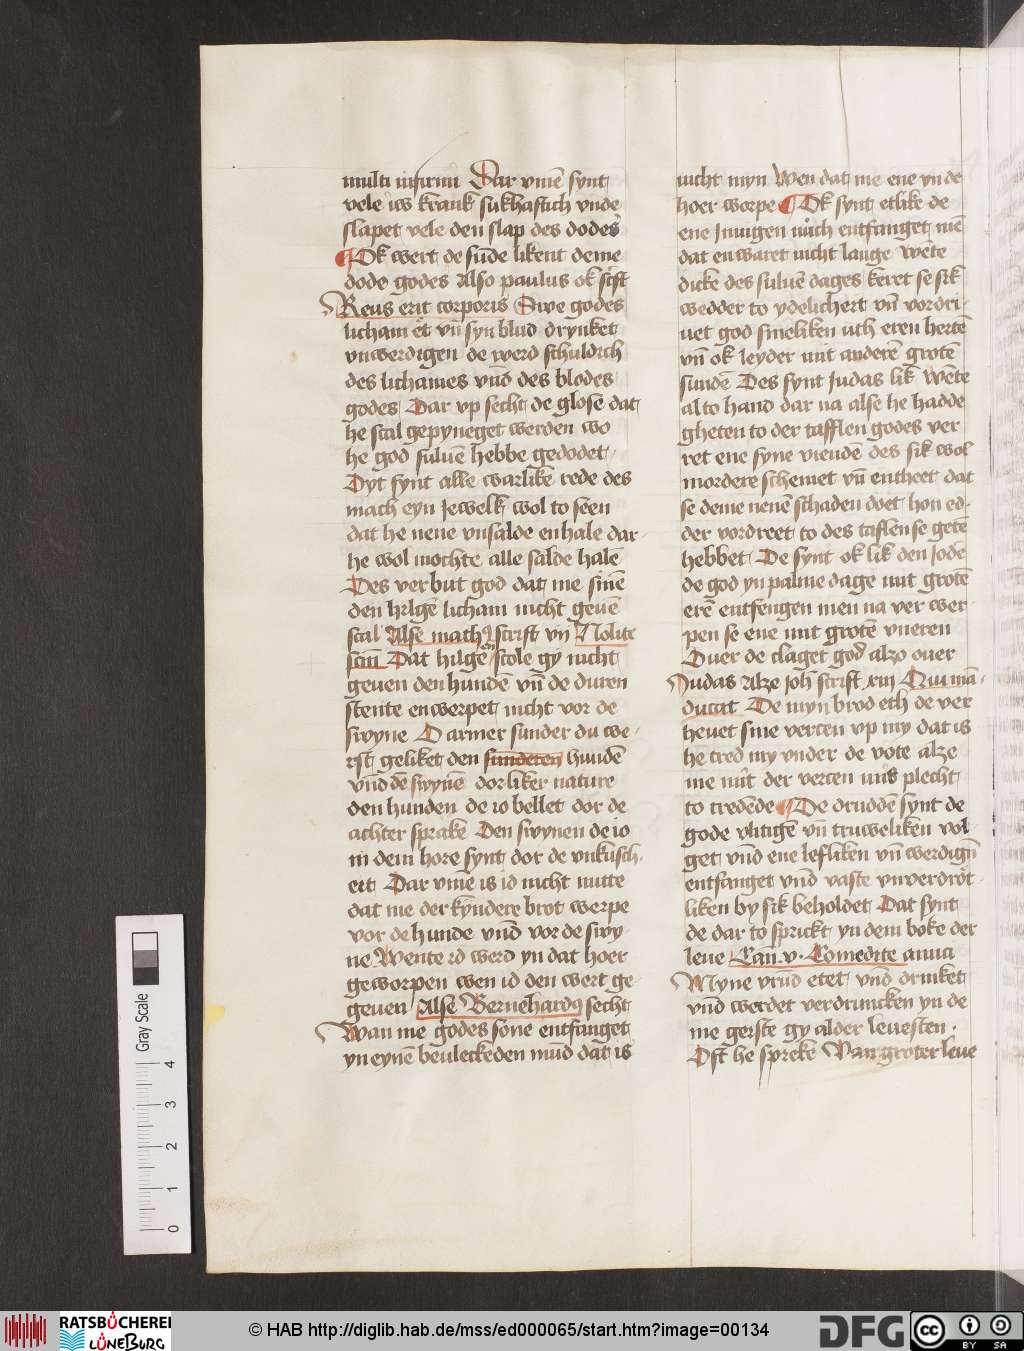 multi infirmi Dar vmē synt
vele iw krank sukhaftich vnde
slapet vele den slap des dodes
Ok wert de sūde likent deme
dode godes Also paulus ok scft
Reus erit corporis Swe godes
licham et vn̄ syn blud drynket
vnwerdigen de werd schuldich
des lichames vn̄d des blodes
godes Dar vp secht de glose dat
he scal gepyneget werden wo
he god suluē hebbe gedodet
Dyt synt alle warlike rede des
mach eyn Jewelk wol to seen
dat he nene vnsalde enhale dar
he wol mochte alle salde halē
Des ver but god dat me sinē
den hilgē licham nicht geue
scal Alse math9 scrift vn Nolite
scm̄ Dat hilgē scole gy nicht
geuen den hundē vn̄ de duren
stente enwerpet nicht vor de
swyne O armer sunder du we
rst geliket den sunderen hundē
vn̄d dē swynē dor liker nature
den hunden de io bellet dor de
achter sprake Den swynen de io
in dem hore synt dor de vnkusch
eit Dar vmē is id nicht nutte
dat me der kyndere brot werpe
vor de hunde vn̄d vor de swy
ne Wente id werd yn dat hoer
geworpen wen id den wert ge
geuen Alse Bernehard9 secht
Wan me godes sone entfanget
yn eynē beuleckeden mūd dat is
nicht myn Wen dat me ene yn de
hoer worpe Ok synt etlike de
ene Jnnigen entfanget mē
dat en waret nicht lange wēte
dicke des suluē dages keret se sik
wedder to ydelicheit vn̄ vordri
uet god smeliken uth eren hertē
vn̄ ok leyder mit anderē grotē
sundē Des synt Judas lik wēte
alto hand dar na alse he hadde
gheten to der tafflen godes ver
ret ene syne viendē des sik wol
mordere schemet vn̄ entheet dat
se deme nenē schaden doet hon ed
der vordreet to des taflen se getē
hebbet De synt ok lik den Jodē
de god yn palme dage mit grotē
erē entfengen men na ver wer
pen se ene mit grotē vneren
Ouer de claget god alzo ouer
Judas Alze Joh scrift xiij Qui mā
ducat De myn brod eth de ver
heuet sine verten vp my dat is
he tred my vnder de vote alze
me mit der verten plecht
to tredēde De druddē synt de
gode vlitigē vn̄ truweliken vol
get vn̄d ene lefliken vn̄ werdigē
entfanget vn̄d vaste vnverdrot
liken by sik beholdet Dat synt
de dar to sprickt yn dem boke der
leue Can. v. Comedite amici
Myne vrūd etet vn̄d drinket
vn̄d werdet verdruncken yn de
me gerste gy alder leuesten .
Oft he spreke Van groter leue
Gray Scale
0 1 2 3 4
RATSBÜCHEREI
LÜNEBURG
© HAB http://diglib.hab.de/mss/ed000065/start.htm?image=00134
DFG
cc BY SA